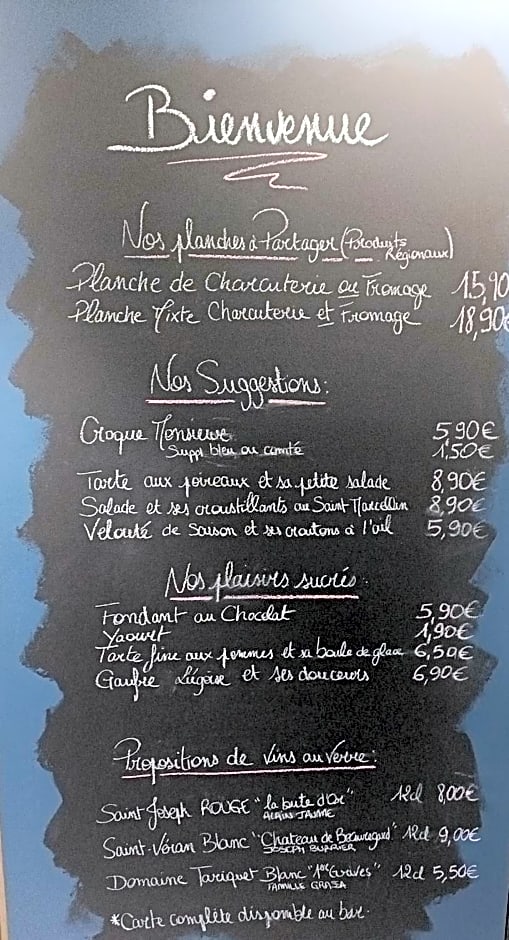 Bienvenue
Nos planches à Partager (Produits Régionaux)
Planche de Charcuterie ou Fromage 15,90
Planche Mixte Charcuterie et Fromage 18,90€
Nos Suggestions:
Croque Monsieur 5,90€
Suppl bleu ou comté 1,50€
Tarte aux poireaux et sa petite salade 8,90€
Salade et ses croustillants au Saint Marcellin 8,90€
Velouté de Saison et ses croutons à l'ail 5,90€
Nos plaisirs sucrés.
Fondant au Chocolat 5,90€
Yaourt 1,90€
Tarte fine aux pommes et sa boule de glace 6,50€
Gaufre Liégeoise et ses douceurs 6,90€
Propositions de vins au verre:
Saint Joseph ROUGE "la bute d'Or" 12cl 8,00€
ALAIN JAUME
Saint-Véran Blanc "Chateau de Beauregard" 12cl 9,00€
JOSEPH BURRIER
Domaine Tariquet Blanc "1ères Grives" 12cl 5,50€
FAMILLE GRASSA
*Carte complète disponible au bar.